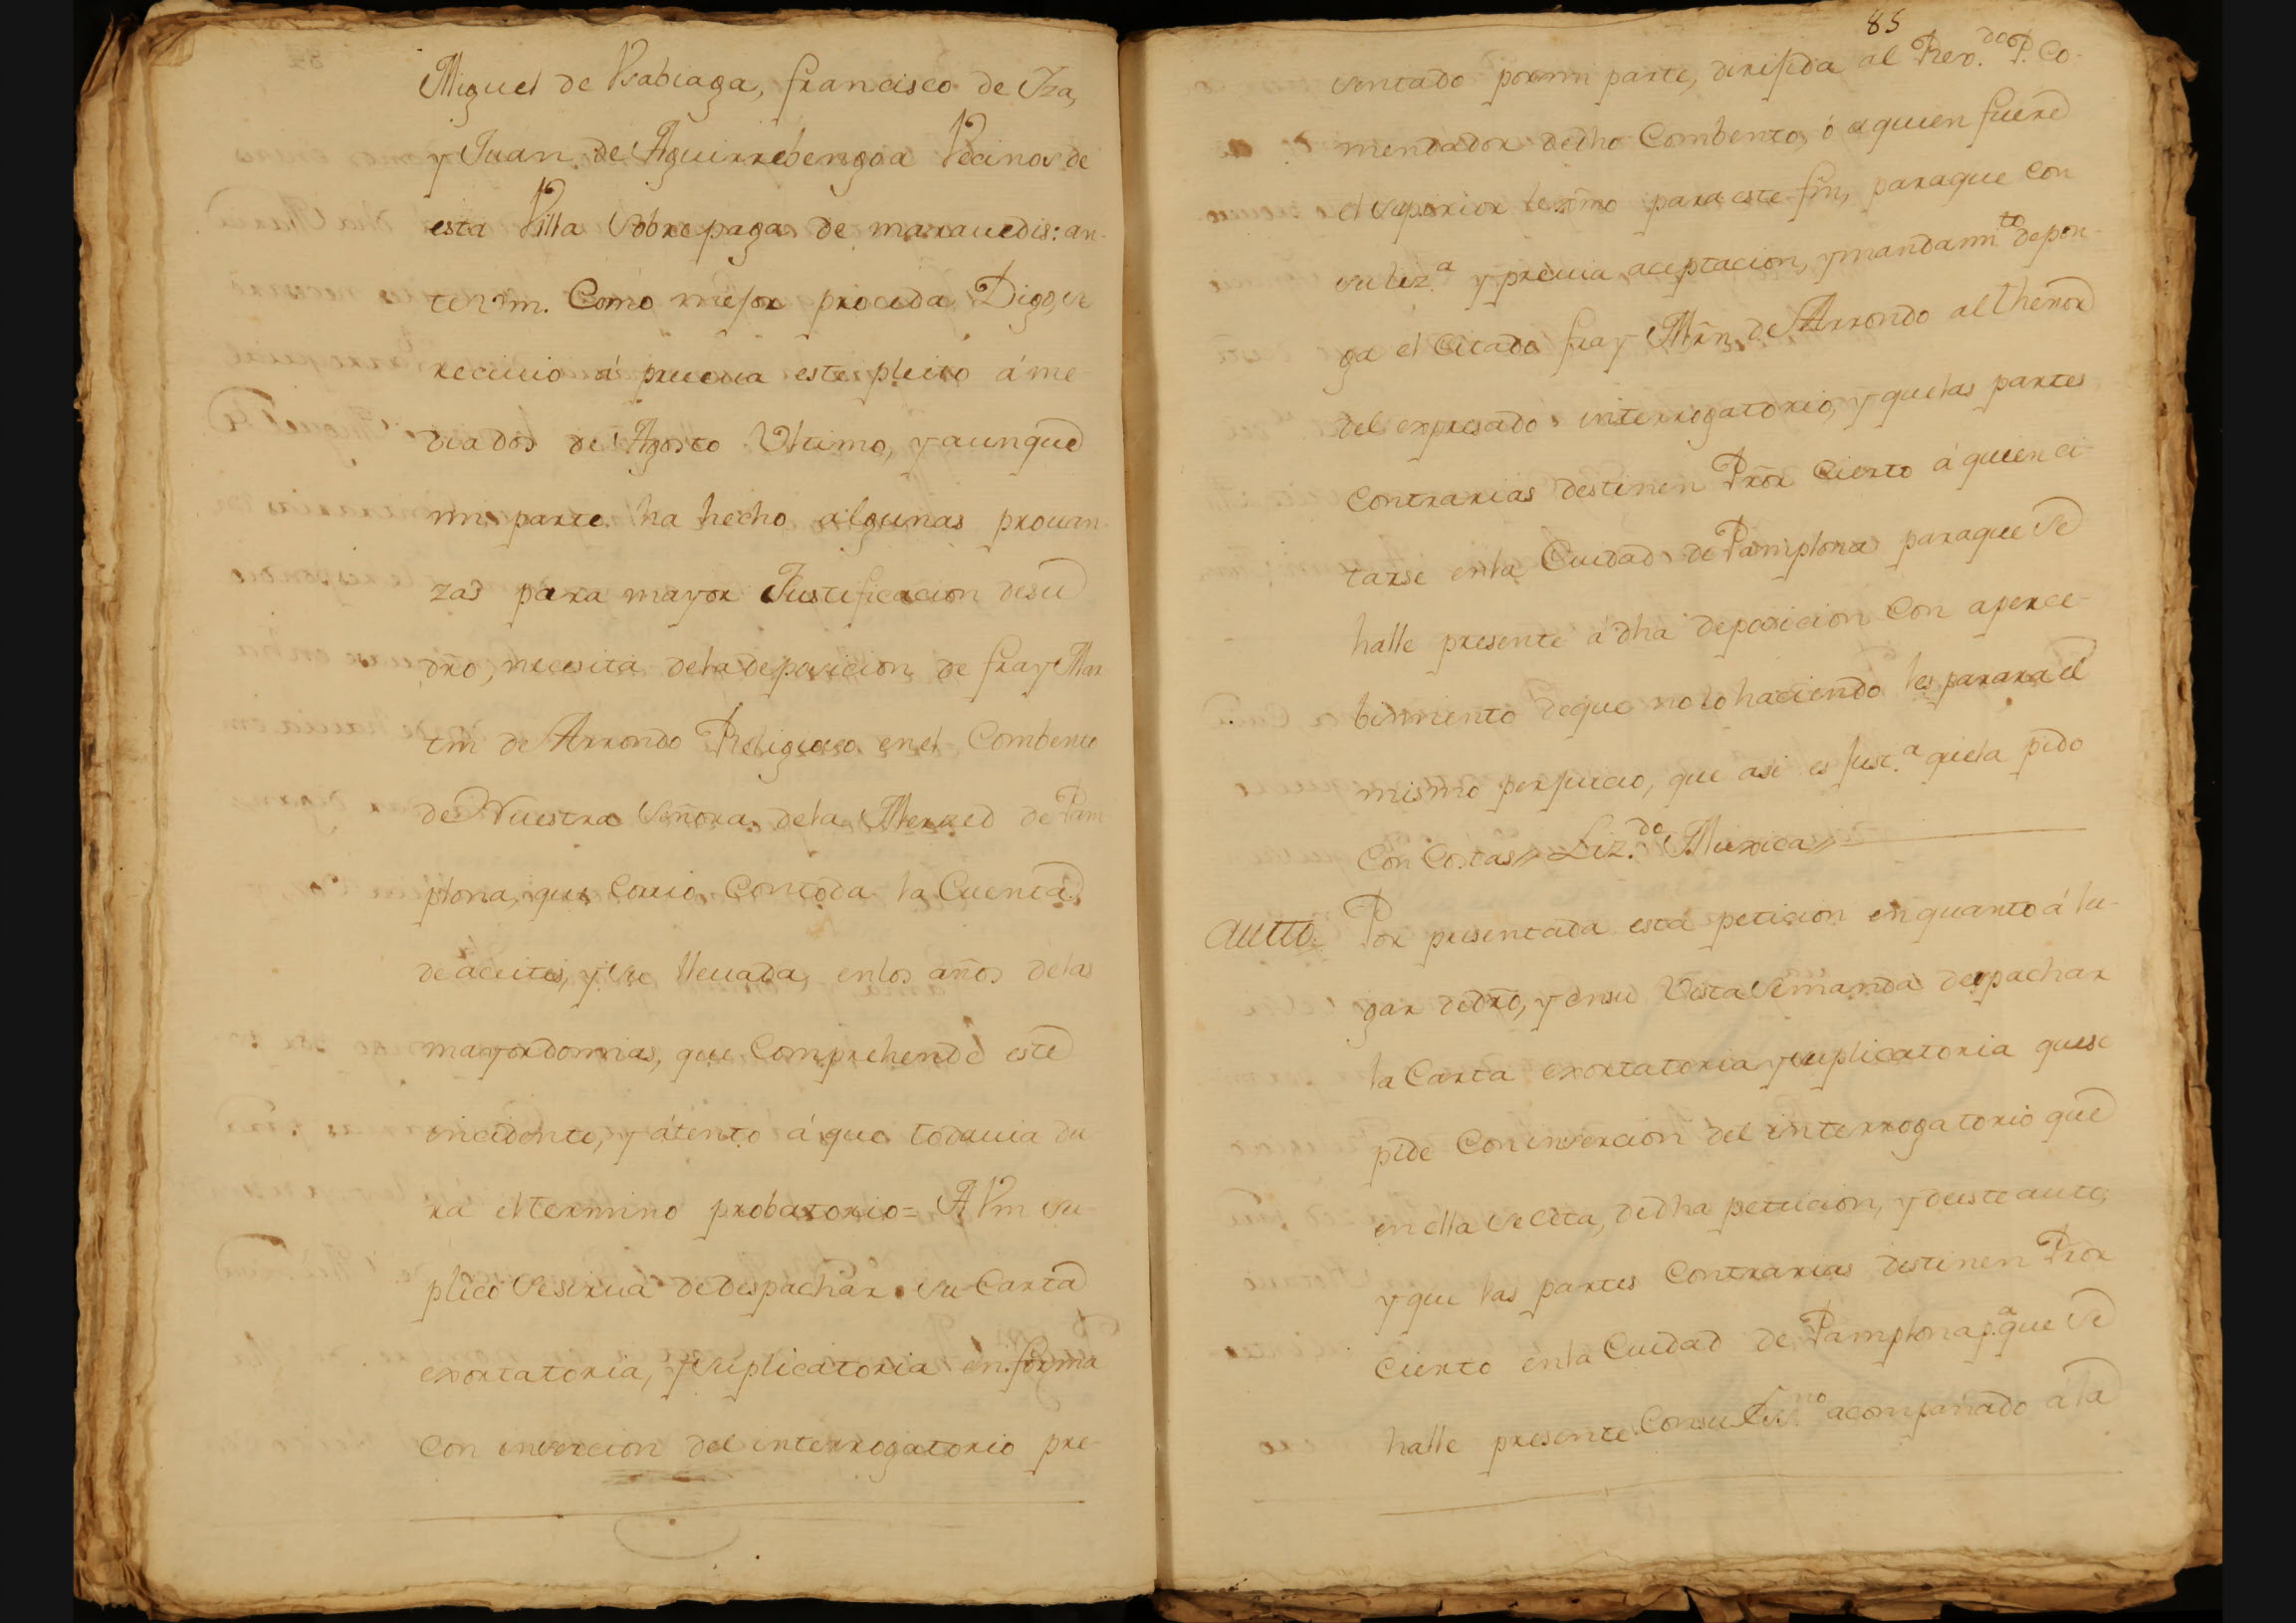 Miguel de Vsabiaga, francisco de Yza,
y Juan de Aguirrebengoa Vecinos de
esta Villa sobre paga de marauedis: an-
te vm. Como mejor proceda Digo, se
reciuio á prueua este pleito á me-
diados de Agosto Vltimo, y aunque
mi parte ha hecho algunas prouan-
zas para mayor Justificacion desu
dro, necesita dela deposicion de fray Mar
tin de Arrondo Religioso enel Combento
de Nuestra Señora dela Merzed de Pam
plona, que Corrio Contoda la Cuenta
de aceites, y se lleuada, enlos años delas
mayordomias, que Comprehende este
incidente, y átento á que todauia du-
ra el termino probatorio = A Vm su-
plico Sesirua dedespachar su Carta
exortatoria, y suplicatoria en forma
Con insercion del interrogatorio pre-
85
sentado pormi parte, dirijida al Rev.do P. Co-
mendador dedho Combento, ó aquien fuere
el superior lexmo para este fin, paraque Con
su liz.a y preuia aceptacion, y mandami.to depon-
ga el Citado fray Mrn de Arrondo al thenor
del expresado interrogatorio, y quelas partes
Contrarias destinen Pror Cierto á quien ci-
tarse enla Ciudad de Pamplona paraque Se
halle presente á dha deposicion Con aperce-
bimiento deque no lo haciendo les parara el
mismo perjuicio, que asi es Just.a quela pido
Con Costas // Liz.do Muxica //
Autto. Por presentada esta peticion enquanto á lu-
gar dedro, y ensu Vista Semanda despachar
la Carta exortatoria y suplicatoria quese
pide Coninsercion del interrogatorio que
en ella se Cita, dedha peticion, y deeste auto,
y que las partes Contrarias destinen Pror
Cierto enla Ciudad de Pamplona p.a que Se
halle presente Consu Ess.no acompañado a la